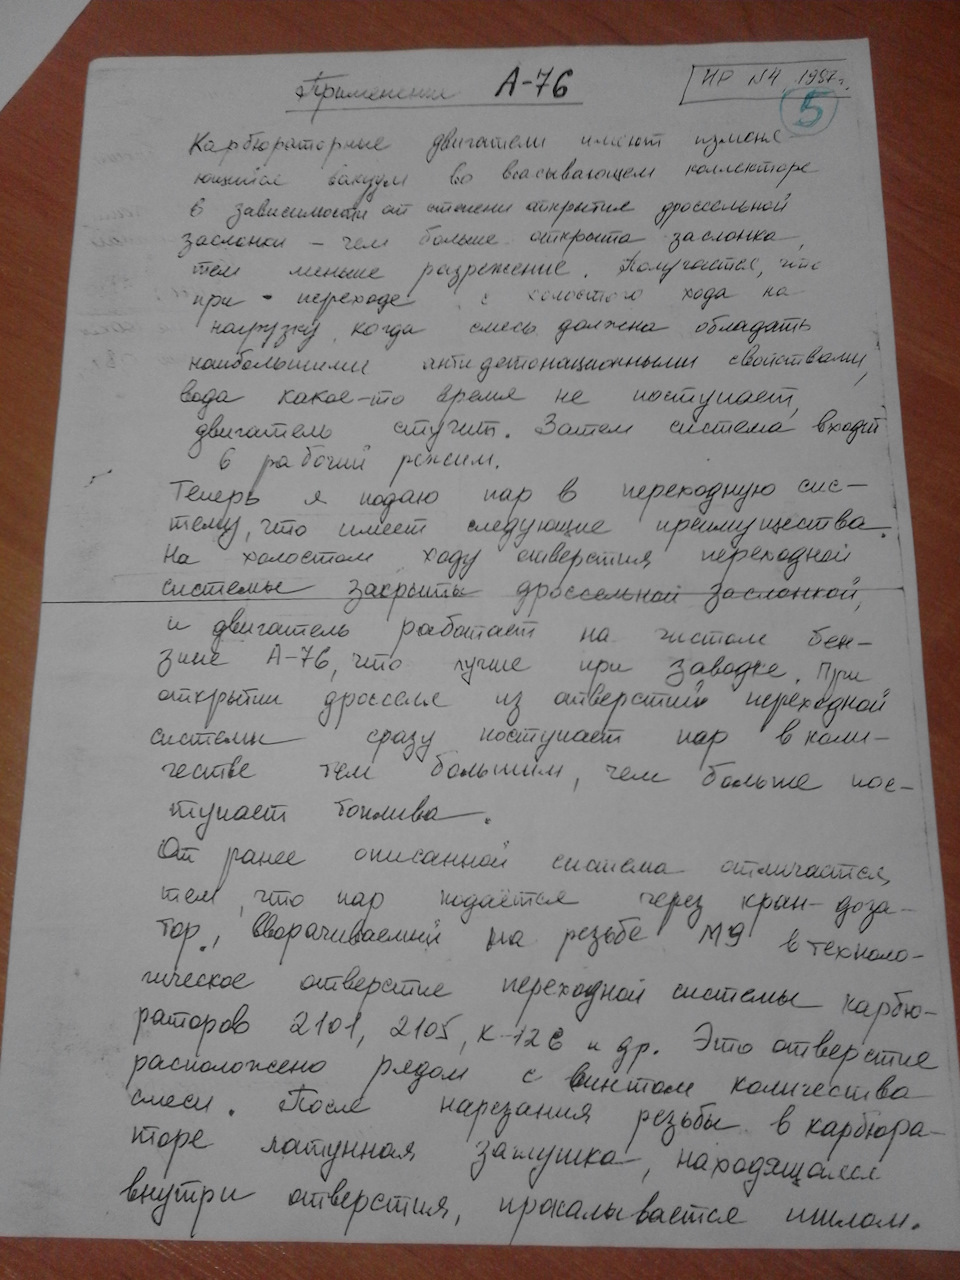 Применение А-76
ИР №4, 1987г.
5
Карбюраторные двигатели имеют изменя-
ющийся вакуум во всасывающем коллекторе
в зависимости от степени открытия дроссельной
заслонки – чем больше открыта заслонка,
тем меньше разрежение. Получается, что
при переходе с холостого хода на
нагрузку, когда смесь должна обладать
наибольшими антидетонационными свойствами,
вода какое-то время не поступает,
двигатель стучит. Затем система входит
в рабочий режим.
Теперь я подаю пар в переходную сис-
тему, что имеет следующие преимущества.
На холостом ходу отверстия переходной
системы закрыты дроссельной заслонкой,
и двигатель работает на чистом бен-
зине А-76, что лучше при заводке. При
открытии дросселя из отверстий переходной
системы сразу поступает пар в коли-
честве тем большим, чем больше пос-
тупает топлива.
От ранее описанной система отличается
тем, что пар подаётся через кран-доза-
тор, вворачиваемый на резьбе М9 в техноло-
гическое отверстие переходной системы карбю-
раторов 2101, 2105, К-126 и др. Это отверстие
расположено рядом с винтом количества
смеси. После нарезания резьбы в карбюра-
торе латунная заглушка, находящаяся
внутри отверстия, прокалывается шилом.